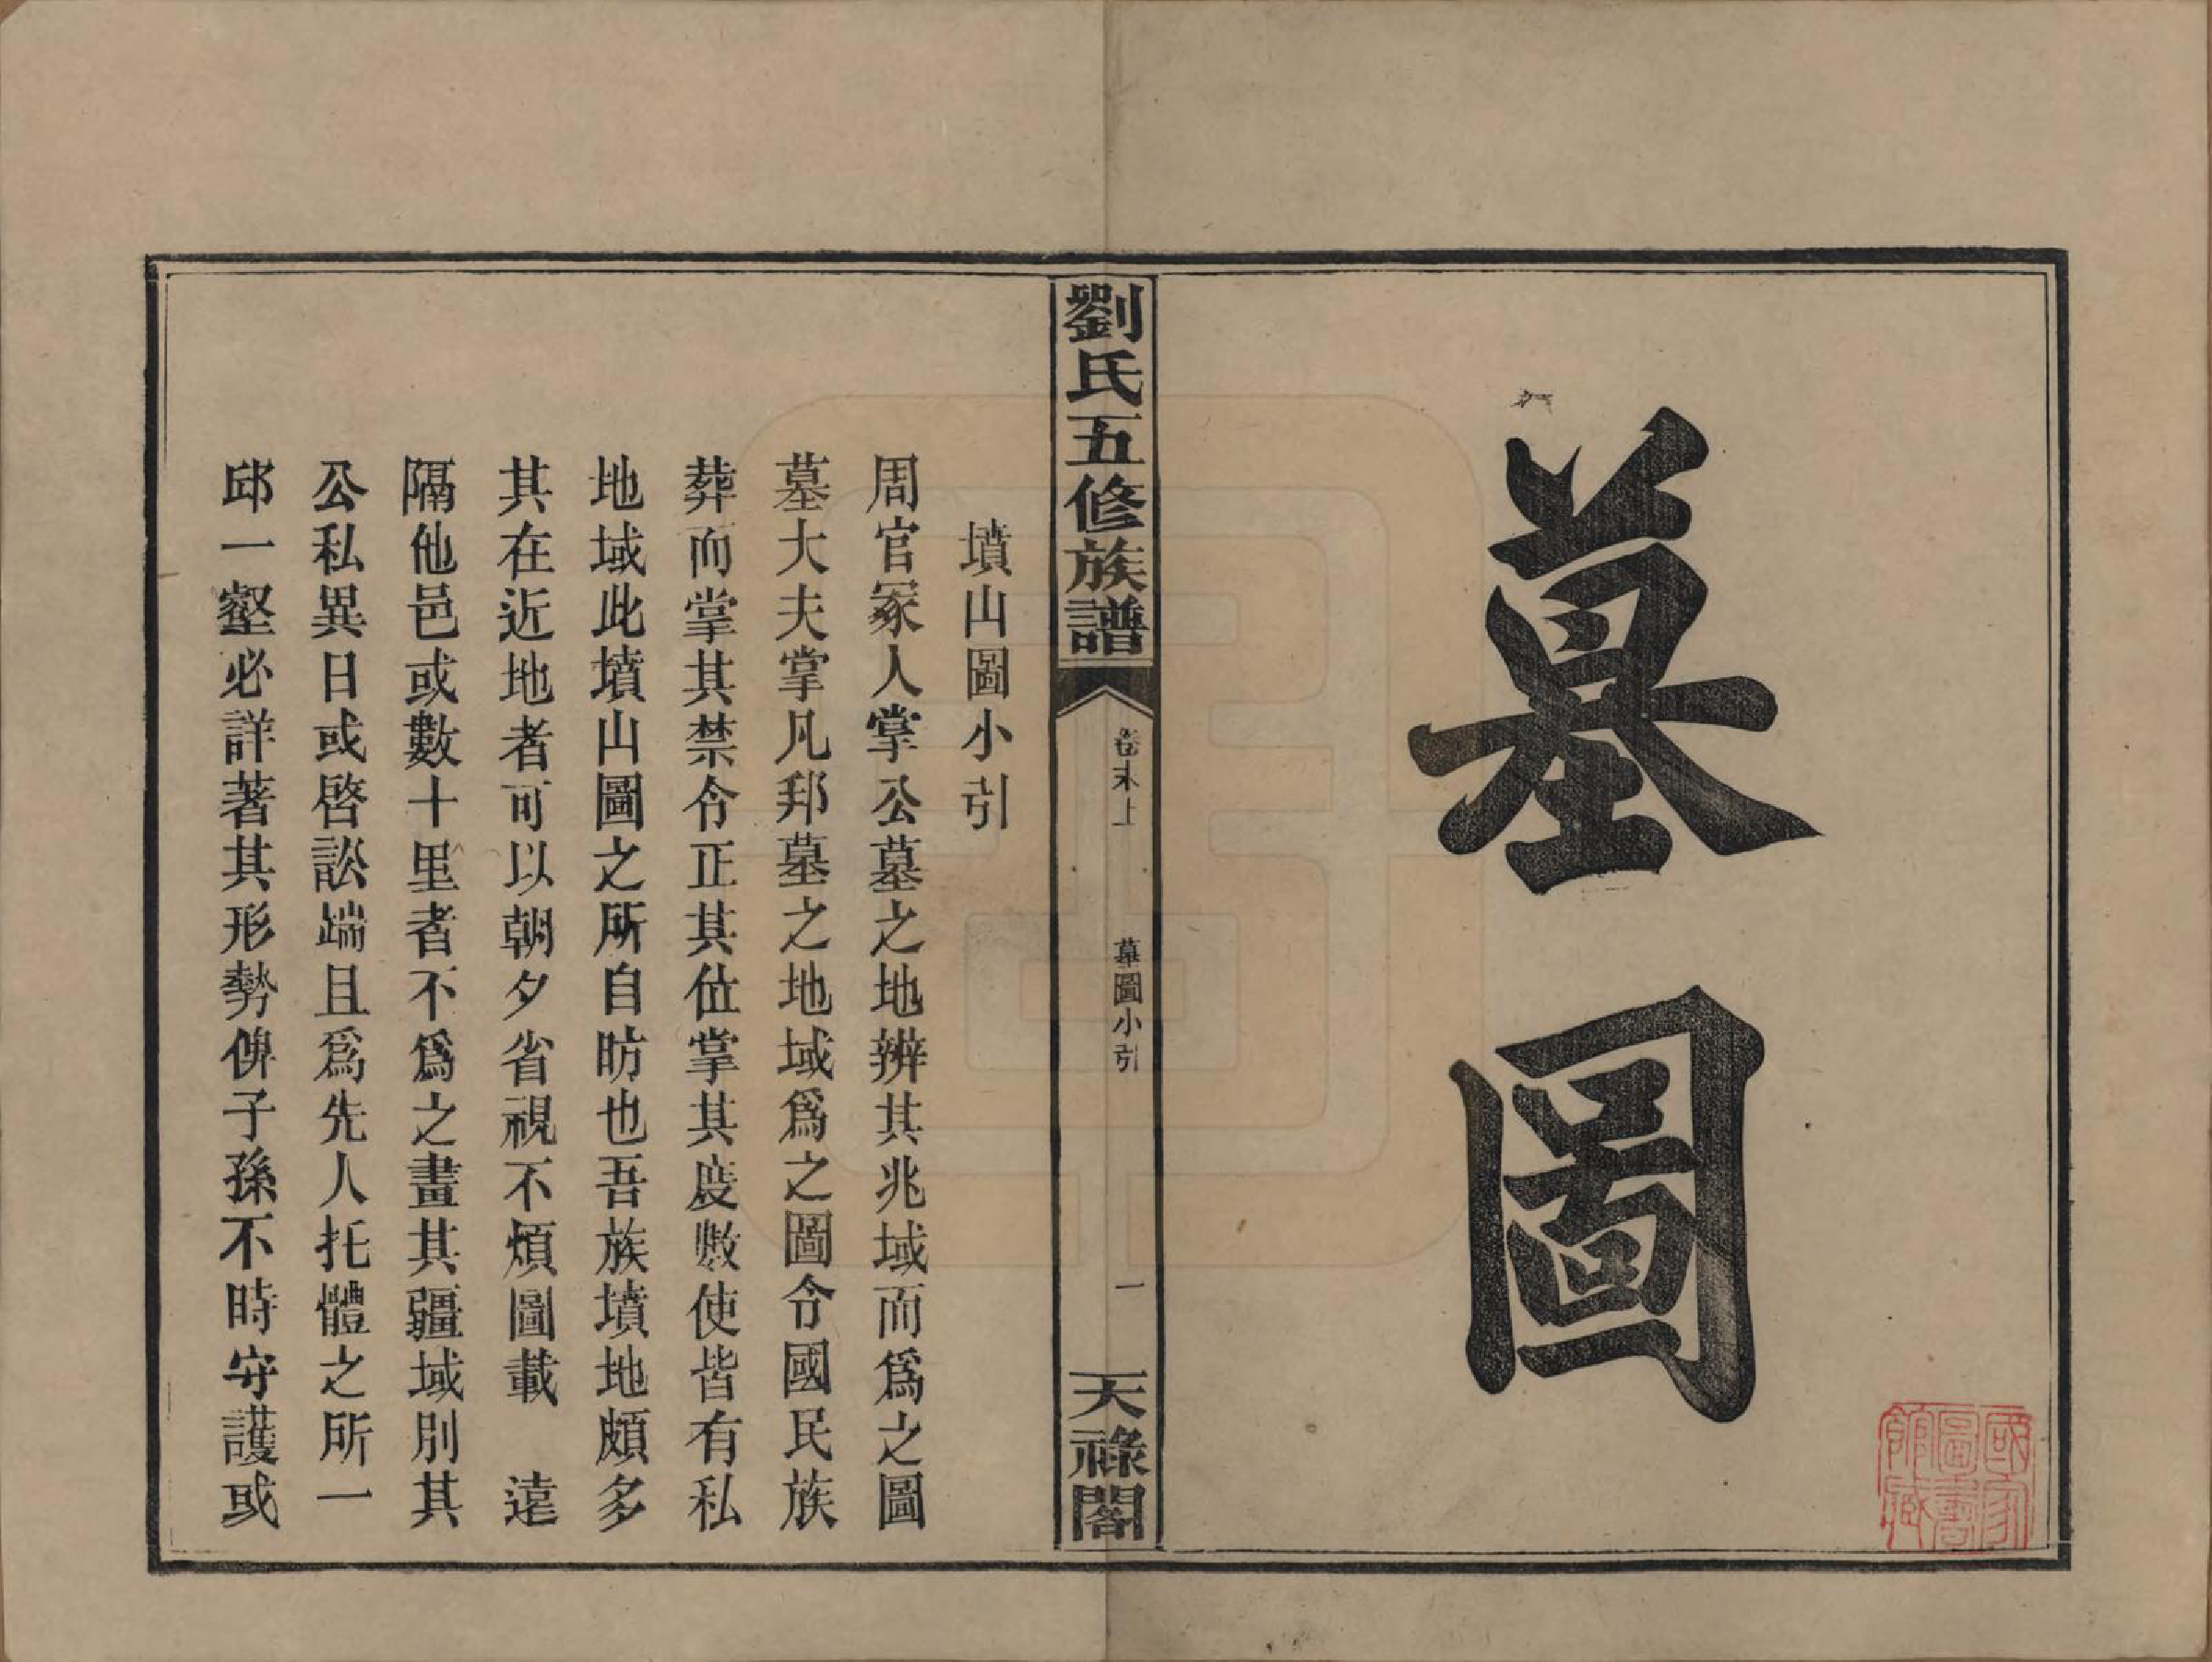 墓圖
國家圖書館藏
劉氏五修族譜
卷末上
墓圖小引
一
天祿閣
墳山圖小引
周官冢人掌公墓之地辨其兆域而爲之圖
墓大夫掌凡邦墓之地域爲之圖令國民族
葬而掌其禁令正其位掌其度數使皆有私
地域此墳山圖之所自昉也吾族墳地頗多
其在近地者可以朝夕省視不煩圖載 遠
隔他邑或數十里者不爲之畫其疆域別其
公私異日或啓訟端且爲先人托體之所一
邱一壑必詳著其形勢俾子孫不時守護或